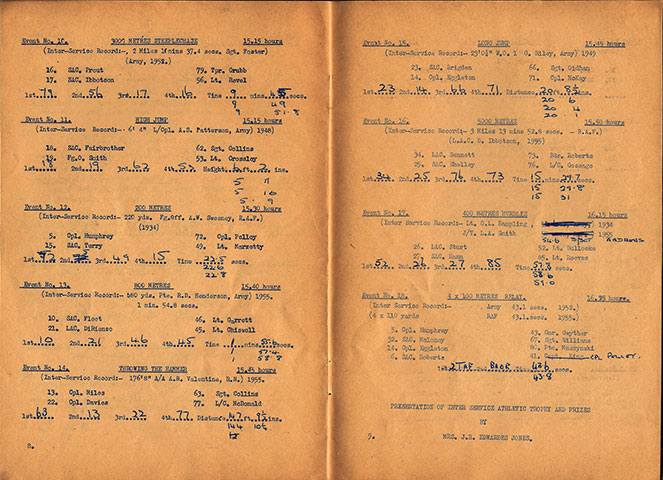 Event No. 10. 3000 METRES STEEPLECHASE 15.15 hours
(Inter-Service Record:-, 2 Miles 10mins 37.4 secs. Sgt. Foster)
(Army, 1952.)
16. SAC. Prout 79. Tpr. Grubb
17. SAC. Ibbotson 56. Lt. Revel
1st. 79 2nd. 56 3rd. 17 4th. 16 Time 9 mins. 45 secs.
9 49
9 51.8
Event No. 11. HIGH JUMP 15.15 hours
(Inter-Service Record:- 6' 4" L/Cpl. A.S. Patterson, Army) 1948)
18. SAC. Fairbrother 62. Sgt. Collins
19. Fg.O. Smith 53. Lt. Crossley
1st. 18 2nd. 19 3rd. 62 4th. 53 Height. 6 ft. 2 ins.
5 11
5 10
5 9
Event No. 12. 200 METRES 15.30 hours
(Inter-Service Record:- 220 yds. Fg.Off. A.W. Sweeney, R.A.F.)
(1934)
5. Cpl. Humphrey 72. Cpl. Polley
15. SAC. Terry 49. Lt. Marzetty
1st. 2nd. 3rd. 49 4th. 15 Time 22.5 secs.
22.6
22.8
Event No. 13. 800 METRES 15.40 hours
(Inter-Service Record:- 880 yds. Pte. R.D. Henderson, Army) 1955.
1 min. 54.8 secs.
10. SAC. Fleet 46. Lt. Garrett
21. LAC. DiRienzo 45. Lt. Chiswell
1st. 10 2nd. 21 3rd. 46 4th. 45 Time 1 mins. secs.
1 57.4
1 58.8
Event No. 14. THROWING THE HAMMER 15.45 hours
(Inter-Service Record:- 176'8" A/A A.R. Valentine, R.N.) 1955.
13. Cpl. Niles 63. Sgt. Collins
22. Cpl. Davies 77. L/C. McDonald
1st. 63 2nd. 13 3rd. 22 4th. 77 Distance 147 ft. ins.
144 10½
8.
Event No. 15. LONG JUMP 15.45 hours
(Inter-Service Record:- 23'0¼" W.O. 1 G. Giley, Army) 1949
23. SAC. Brigden 66. Sgt. Oldham
14. Cpl. Eggleton 71. Cpl. McKay
1st. 23 2nd. 14 3rd. 66 4th. 71 Distance 20 ft. 8½ ins.
20 6
20 4
20 1
Event No. 16. 5000 METRES 15.50 hours
(Inter-Service Record:- 3 Miles 13 mins 52.8 secs. - R.A.F.)
(L.A.C. D. Ibbotson, 1955)
34. LAC. Bennett 73. Bdr. Roberts
25. SAC. Shelley 76. L/C. Gozango
1st. 34 2nd. 25 3rd. 76 4th. 73 Time 15 mins. 29.7 secs.
15 29.8
15 31
Event No. 17. 400 METRES HURDLES 16.15 hours
(Inter Service Record:- Lt. C.L. Happling 1934
J/T. L.L. Smith 1955
54.6
26. LAC. Sturt 52. Lt. Bullocke
27. SAC. Hann 85. Lt. Reeves
1st. 52 2nd. 26 3rd. 27 4th. 85 Time 57.8 secs.
58.6
59.0
Event No. 18. 4 x 100 METRES RELAY. 16.25 hours.
(Inter Service Record:- Army 43.1 secs. 1952.)
(4 x 110 yards RAF 43.1secs. 1955.)
5. Cpl. Humphrey 43. Gnr. Gwyther
32. SAC. Maloney 67. Sgt. Williams
14. Cpl. Eggleton 86. Pte. Kaszynski
6. SAC. Roberts 41. CPL POLLEY.
1st. 2TAF 2nd. BAOR 43.6 secs.
43.8
PRESENTATION OF INTER SERVICE ATHLETIC TROPHY AND PRIZES
BY
9. MRS. J.H. EDWARDES JONES.